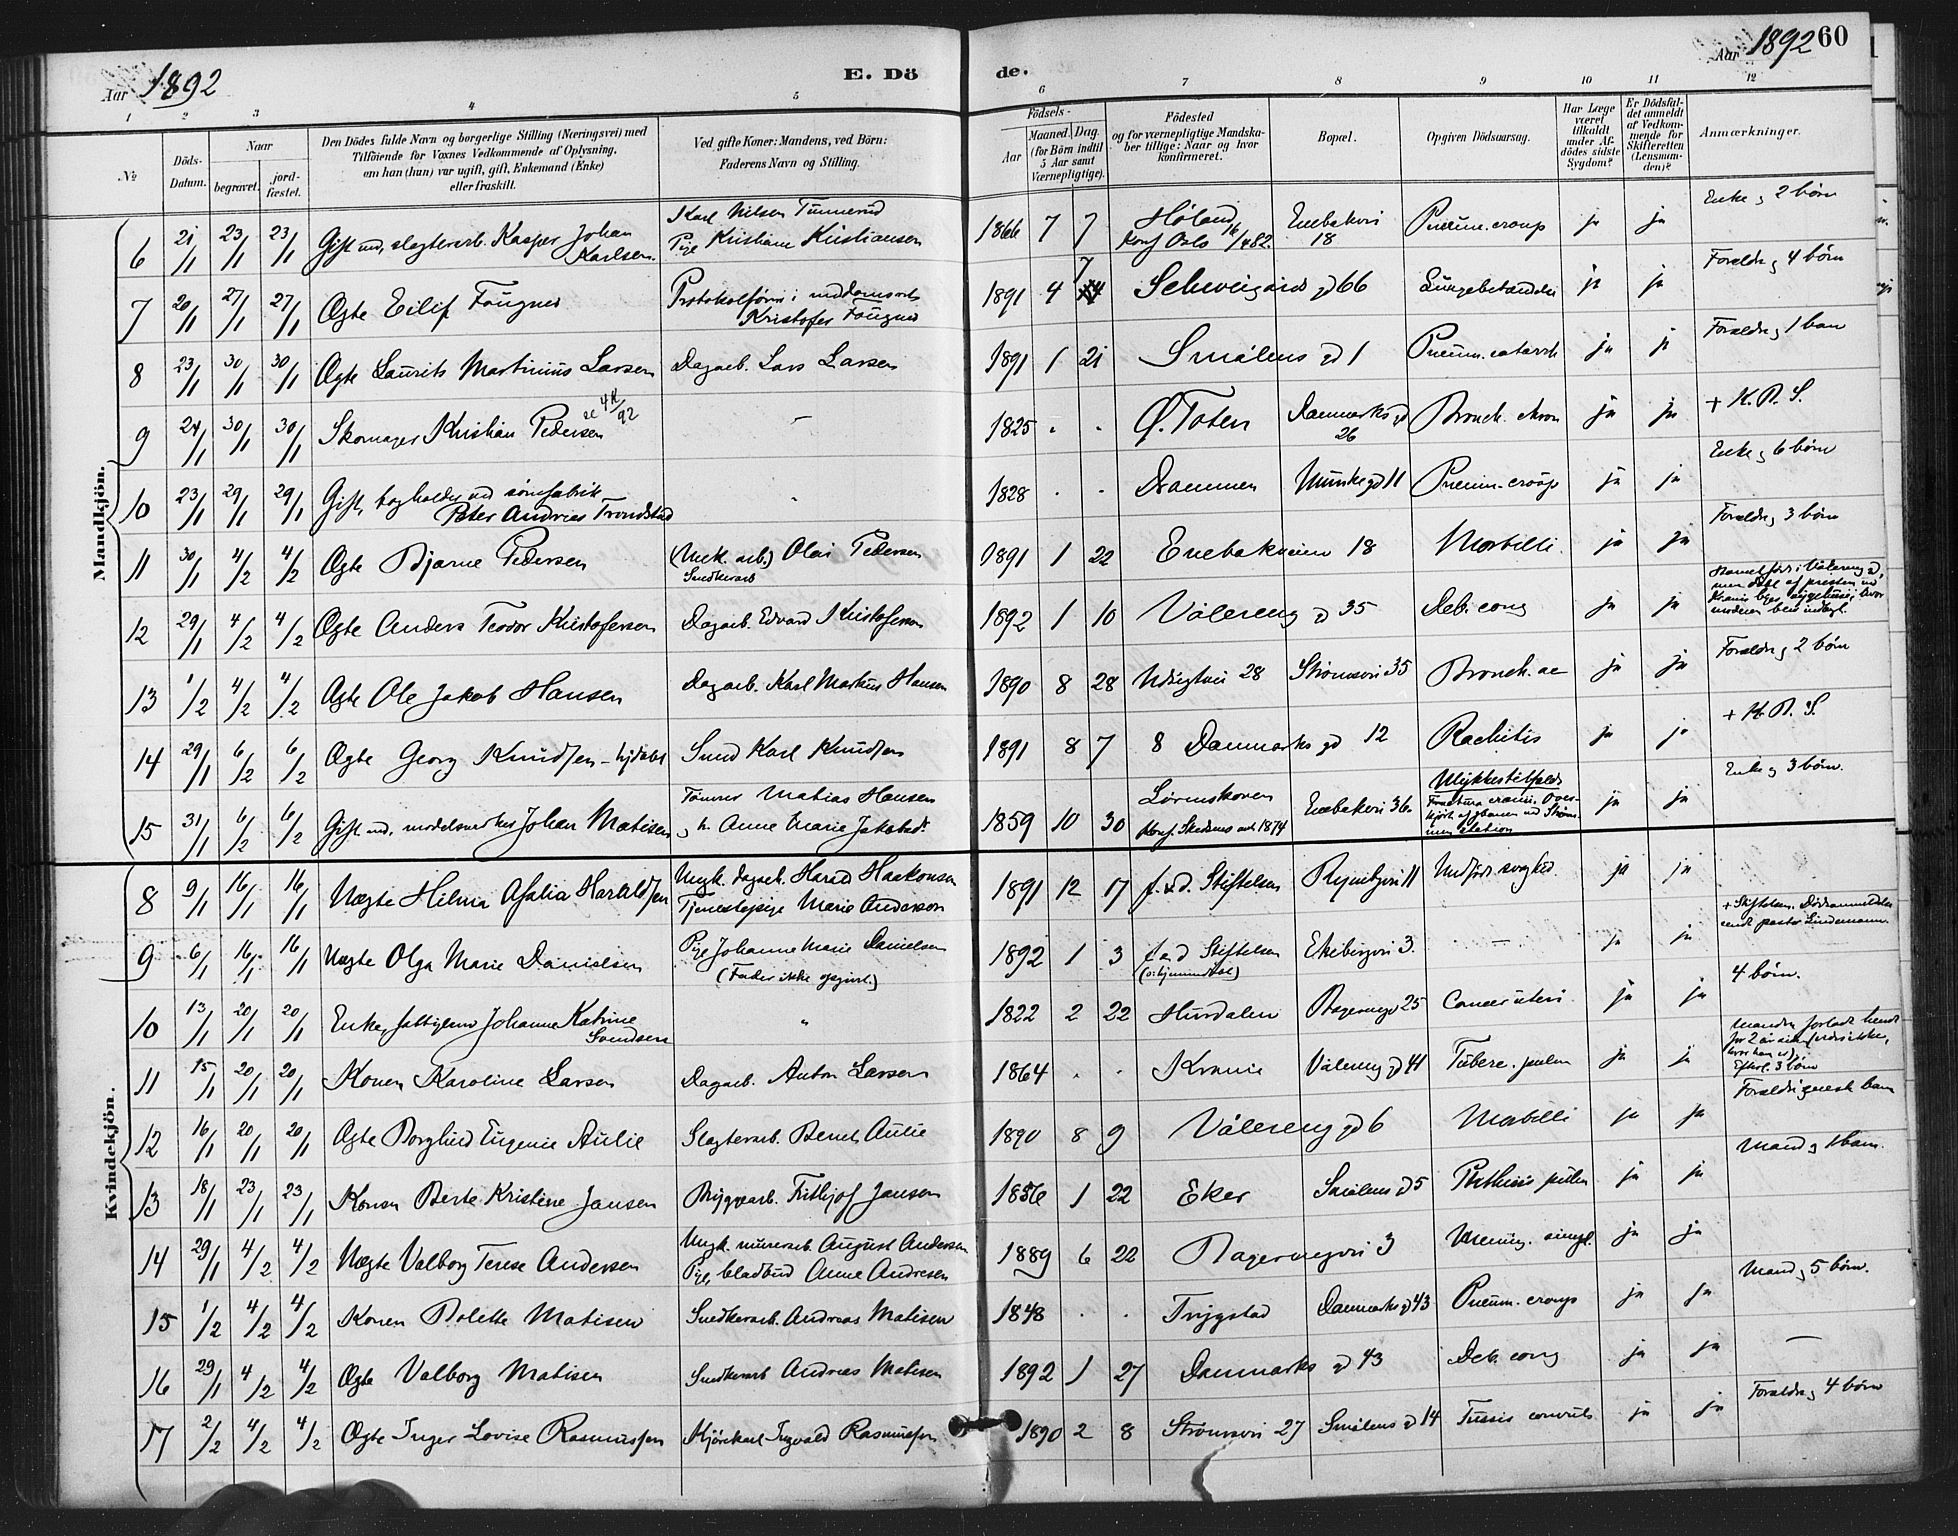 Aar 1892
E. Dö
de.
Aar 1892 60
1 2 3 4 5 6 7 8 9 10 11 12
№
Döds-Datum.
Naar
begravet.
jordfæstet.
Den Dödes fulde Navn og borgerlige Stilling (Næringsvei) med
Tilföiende for Voxnes Vedkommende af Oplysning,
om han (hun) var ugift, gift, Enkemand (Enke)
eller fraskilt.
Ved gifte Koner: Mandens, ved Börn:
Faderens Navn og Stilling.
Födsels-
Aar
Maaned. Dag.
(for Börn indtil
5 Aar samt
Værnepligtige).
Födested
og for værnepligtige Mandska-
ber tillige: Naar og hvor
konfirmeret.
Bopæl.
Opgiven Dödsaarsag.
Har Læge
været
tilkaldt
under Af-
dödes sidste
Sygdom?
Er Dödsfal-
det anmeldt
af Vedkom-
mende for
Skifteretten
(Lensman-
den)?
Anmærkninger.
Mandkjön.
6 21/1 23/1 23/1 Gift ind, slagterarb. Kasper Johan Karlsen. Karl Nilsen Tunnerud Pige Kristiane Kristiansen 1866 7 7 Høland konf Oslo 16/4 82. Enebakvei 18 Pneum. croup ja ja Enke og 2 börn
7 20/1 27/1 27/1 Ægte Eilif Fougner Protokolförer i Kristofer Fougner 1891 4 7 Schweigårds gd 66 Lungebetændelse ja ja Foreldre og 4 börn
8 23/1 30/1 30/1 Ægte Laurits Martinius Larsen Dagarb. Lars Larsen 1891 1 21 Smålens gd 1 Pneum. catarrh ja ja Foreldre og 1 barn
9 24/1 30/1 30/1 Skomager Kristian Pedersen - 1825 . . Ø. Toten Danmarks gd 26 Bronch. chron ja ja + K. B. S.
10 23/1 29/1 29/1 Gift, bogholder ved sömfabrik Peter Andreas Trondstad 1828 . . Drammen Munkegd 11 Pneum. croup ja ja Enke og 6 börn
11 30/1 4/2 4/2 Ægte Bjarne Pedersen (Mek. arb.) Olai Pedersen Snedkerarb 1891 1 22 Enebakveien 18 Morbilli. ja ja Foreldre og 3 börn
12 29/1 4/2 4/2 Ægte Anders Teodor Kristofersen Dagarb. Edvard Kristofersen 1892 1 10 Vålereng gd 35 Deb. cong ja ja
13 1/2 4/2 4/2 Ægte Ole Jakob Hansen Dagarb. Karl Markus Hansen 1890 8 28 Udsigtvei 28 Strömsvei 35 Bronch. ac ja ja Foreldre og 2 börn
14 29/1 6/2 6/2 Ægte Georg Knudsen Smed Karl Knudsen 1891 8 7 8 Danmarks gd 12 Rachitis ja ja + K. B. S.
15 31/1 6/2 6/2 Gift ind, modelsnedker Johan Matisen Tömmer Matias Hansen og h. Anne Marie Jakobsd. 1859 10 30 Lörenskoven konf. Skedsmo 1874 Enebakvei 36 Ulykkestilfælde Fractura cranii. Overkjört af banen ved Strömmen station ja ja Enke og 3 börn.
Kvindekjön.
8 9/1 16/1 16/1 Uægte Helma Afalia Haraldsen Ungk. dagarb. Harald Haakonsen Tjenestepige Marie Anderson 1891 12 17 f. e. d. Stiftelsen Rynebgvei 11 Medfödt svaghed. ja ja + Stiftelsen. pastor Lindemann.
9 6/1 16/1 16/1 Uægte Olga Marie Danielsen Pige Johanne Marie Danielsen (Fader ikke opgivet.) 1892 1 3 f. e. d Stiftelsen Ekebergvei 3. - ja ja
10 13/1 20/1 20/1 Enke, fattiglem Johanne Katrine Svendsen " 1822 2 22 Hurdalen Bagerengd 25 Cancer uteri. ja ja 4 börn.
11 15/1 20/1 20/1 Konen Karoline Larsen Dagarb. Anton Larsen 1864 . . Krania Vålereng gd 41 Tuberc. pulm ja ja Manden forlodt hende for 2 år siden Efterl. 3 börn
12 16/1 20/1 20/1 Ægte Borghild Eugenie Aulie Slagterarb. Bernt Aulie 1890 8 9 Vålereng gd 6 Morbilli ja ja
13 18/1 23/1 23/1 Konen Berte Kristine Jansen Bryggearb. Frithjof Jansen 1856 1 22 Eker Smålens gd 5 Phthisis pulm ja ja Mand og 1 barn.
14 29/1 4/2 4/2 Uægte Valborg Terese Andersen Ungk. murerarb. August Andersen Pige, bladbud Anne Andresen 1889 6 22 Bagerengvei 3 Mening. simpl. ja ja
15 1/2 4/2 4/2 Konen Bolette Matisen Snedkerarb. Andreas Matisen 1848 . . Trygstad Danmarks gd 43 Pneum. croup ja ja Mand og 5 börn.
16 29/1 4/2 4/2 Ægte Valborg Matisen Snedkerarb Andreas Matisen 1892 1 27 Danmarks gd 43 Deb. cong ja ja -
17 2/2 4/2 4/2 Ægte Inger Lovise Rasmussen Kjörekarl Ingvald Rasmussen 1890 2 8 Strömsvei 27 Smålens gd 14 Tussis convuls ja ja Foreldre og 4 börn